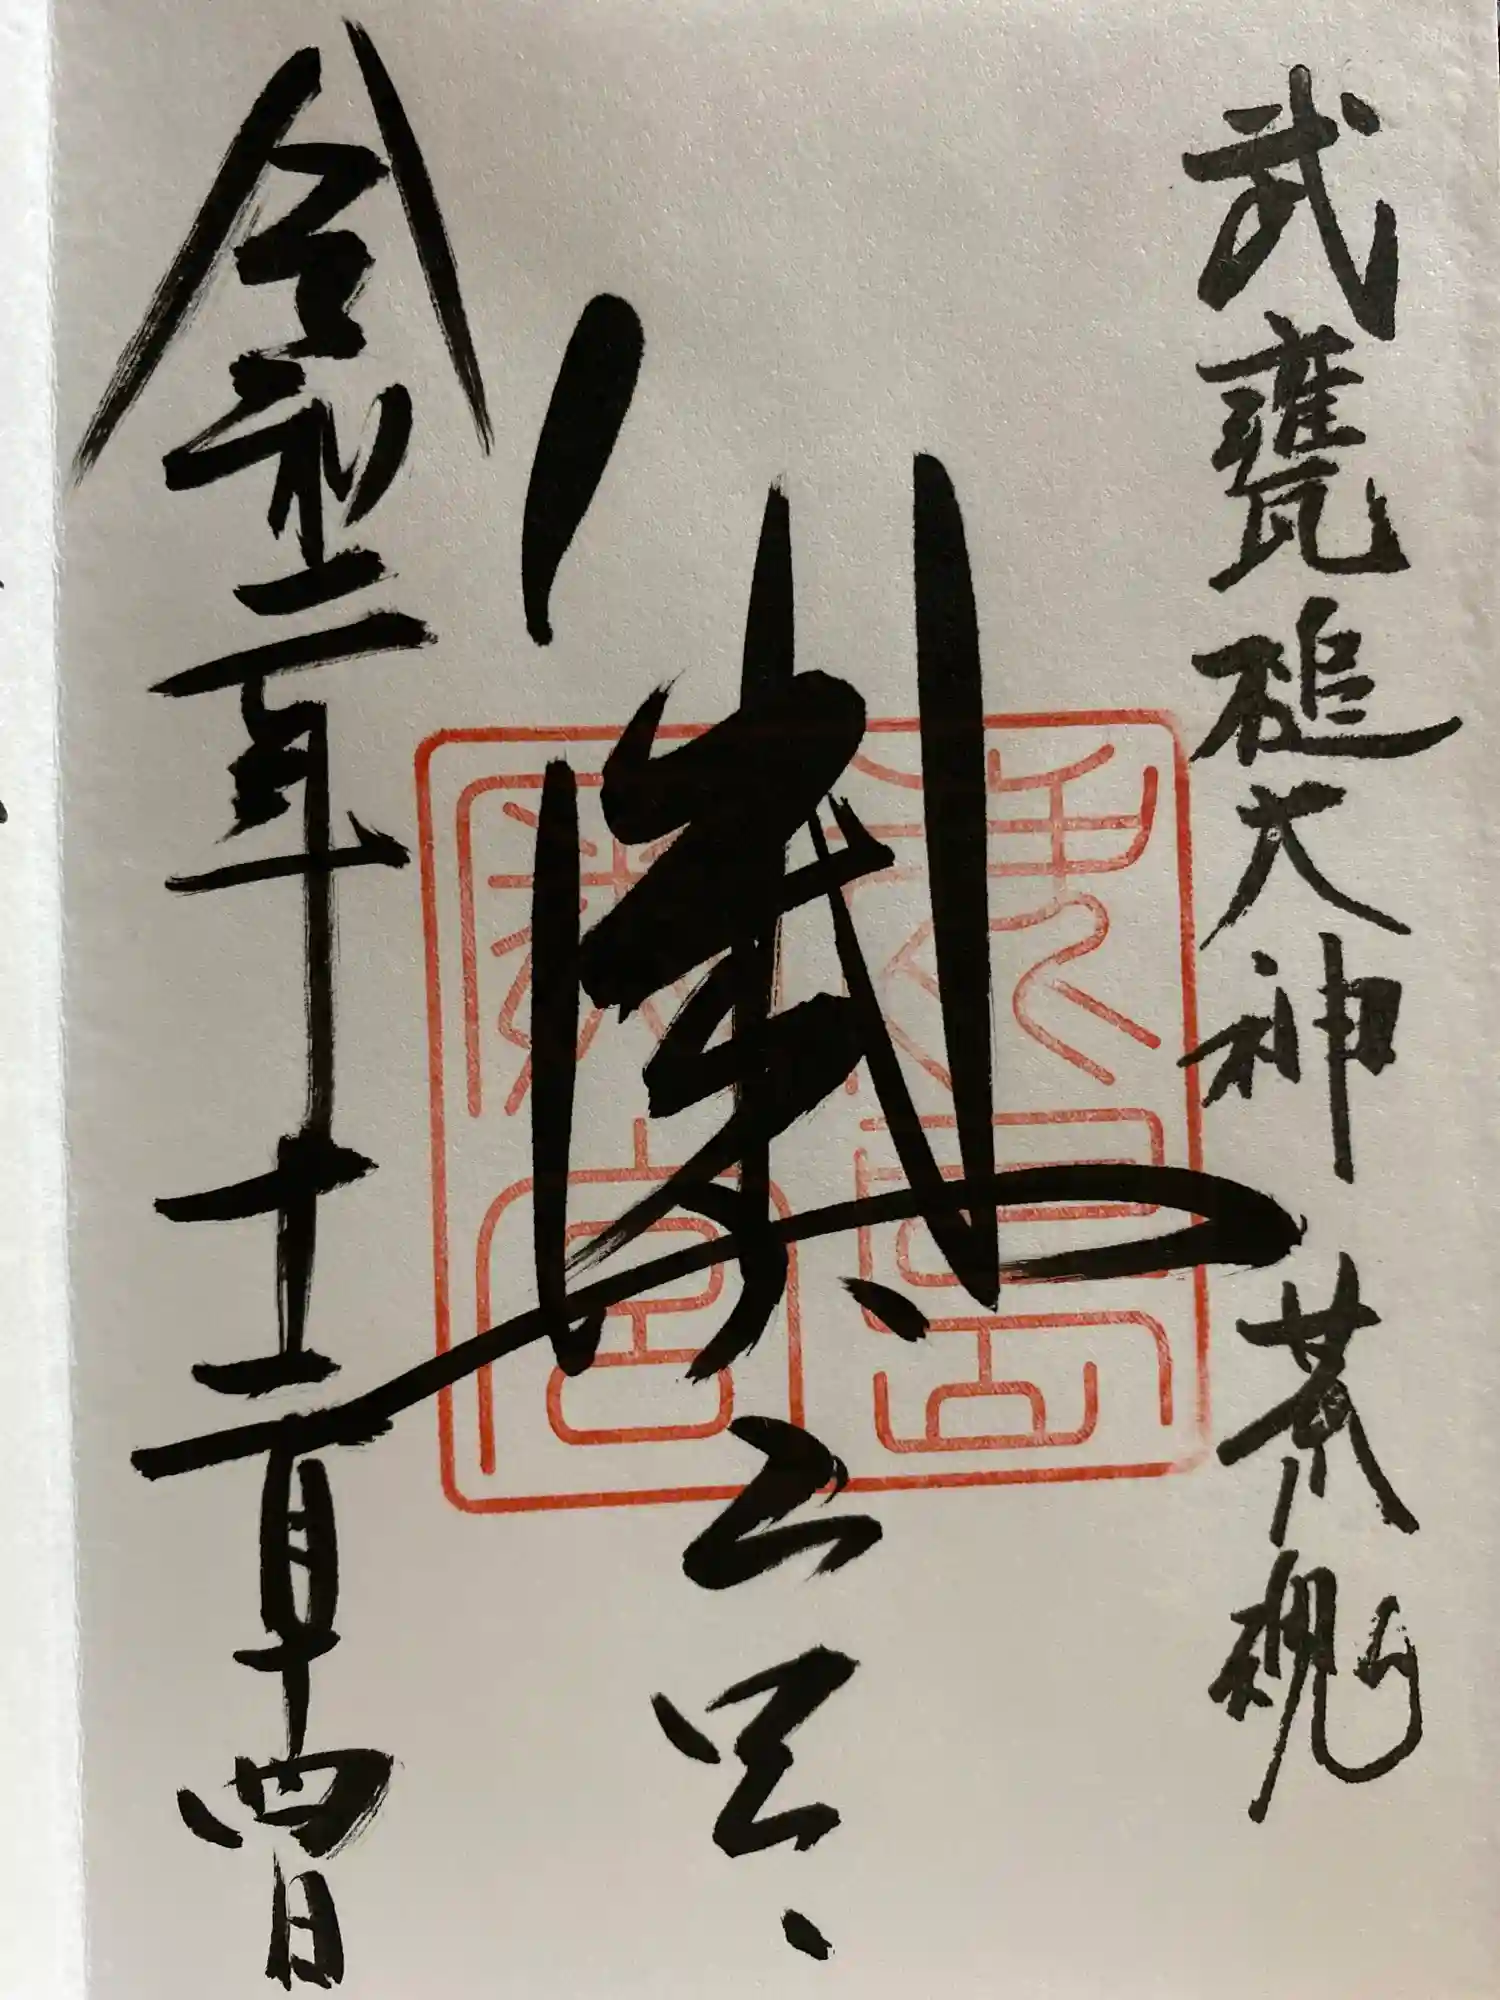 武甕槌大神 荒魂
奥宮
令和二年十二月十四日